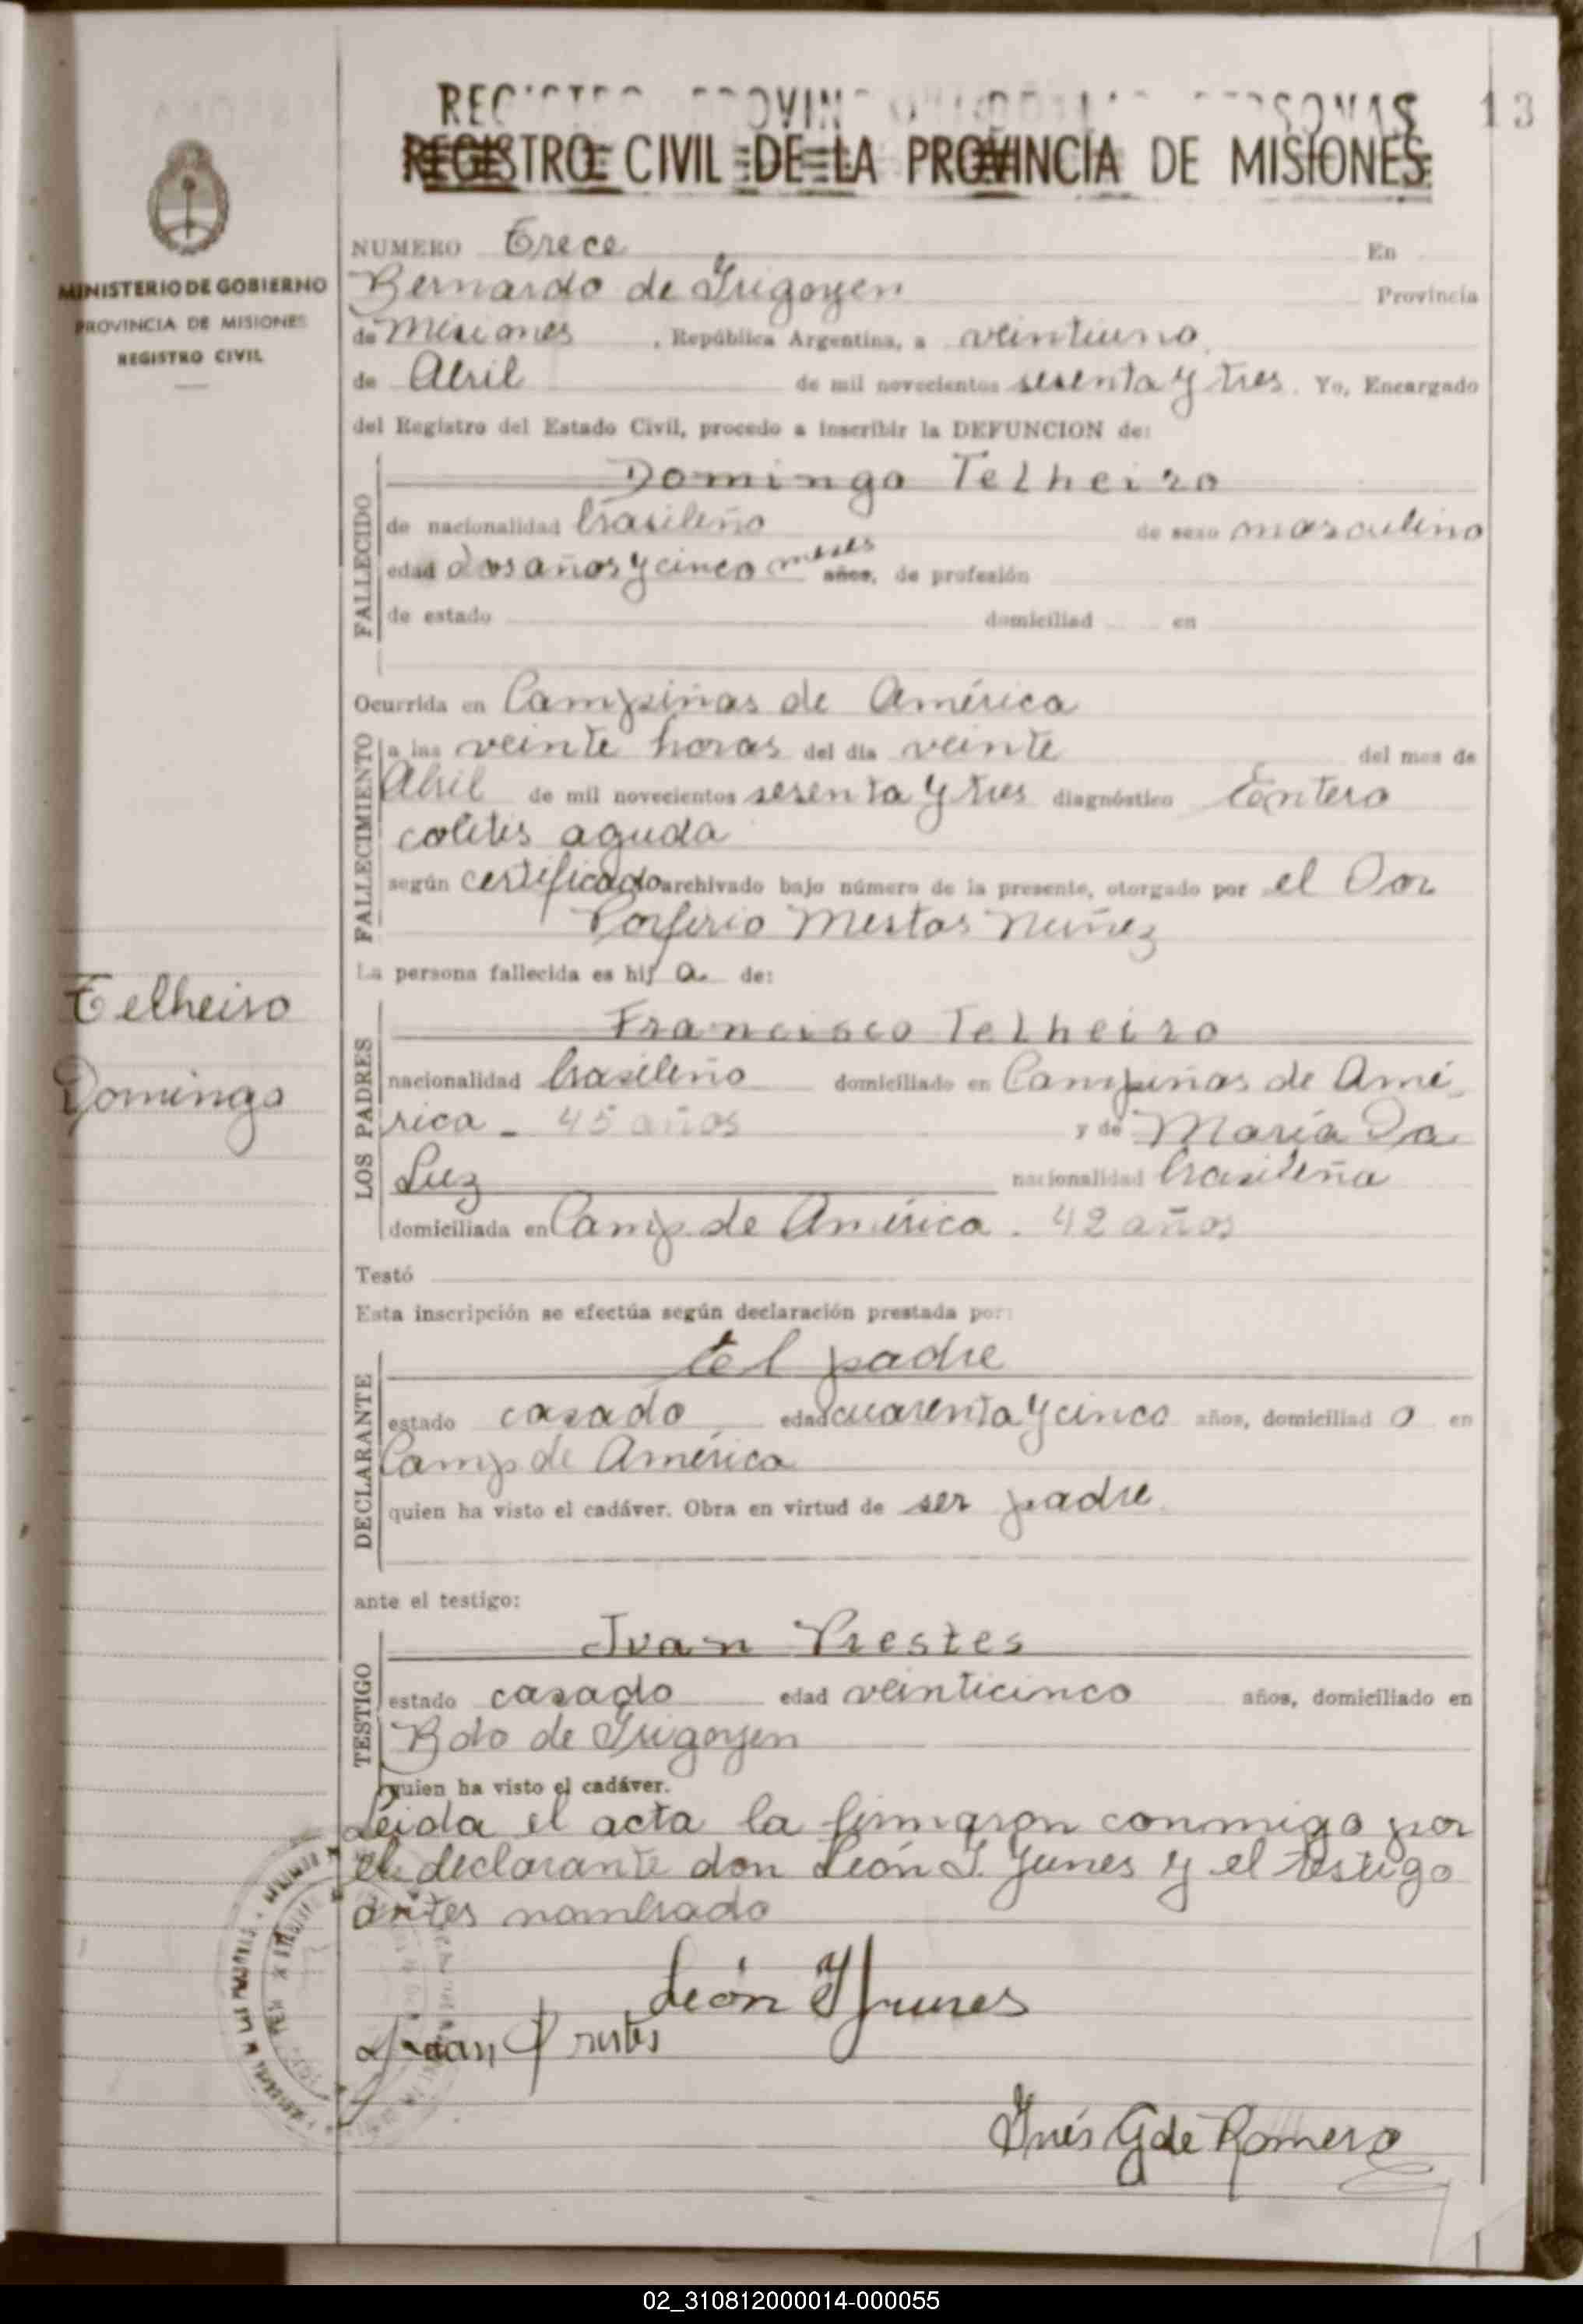 13
REGISTRO CIVIL DE LA PROVINCIA DE MISIONES
MINISTERIO DE GOBIERNO
PROVINCIA DE MISIONES
REGISTRO CIVIL
NUMERO Trece En
Bernardo de Irigoyen Provincia
de Misiones, República Argentina, a veintiuno
de Abril de mil novecientos sesenta y tres. Yo, Encargado
del Registro del Estado Civil, procedo a inscribir la DEFUNCION de:
FALLECIDO
Domingo Telheiro
de nacionalidad brasileño de sexo masculino
edad dos años y cinco meses años, de profesión
de estado domiciliad en
Ocurrida en Campiñas de América
FALLECIMIENTO
a las veinte horas del día veinte del mes de
Abril de mil novecientos sesenta y tres diagnóstico Entero
colitis aguda
según certificado archivado bajo número de la presente, otorgado por el Dor
Porfirio Mestas Nuñez
La persona fallecida es hij o de:
Telheiro
Domingo
LOS PADRES
Francisco Telheiro
nacionalidad brasileño domiciliado en Campiñas de Amé-
rica - 45 años y de María Da
Luz nacionalidad brasileña
domiciliada en Camp. de América. 42 años
Testó
Esta inscripción se efectúa según declaración prestada por:
DECLARANTE
el padre
estado casado edad cuarenta y cinco años, domiciliad o en
Camp de América
quien ha visto el cadáver. Obra en virtud de ser padre
ante el testigo:
TESTIGO
Juan Prestes
estado casado edad veinticinco años, domiciliado en
Bdo de Irigoyen
quien ha visto el cadáver.
Leida el acta la firmaron conmigo por
el declarante don León I. Junes y el testigo
antes nombrado
León I Junes
Juan Prestes
Inés G de Romero
02_310812000014-000055